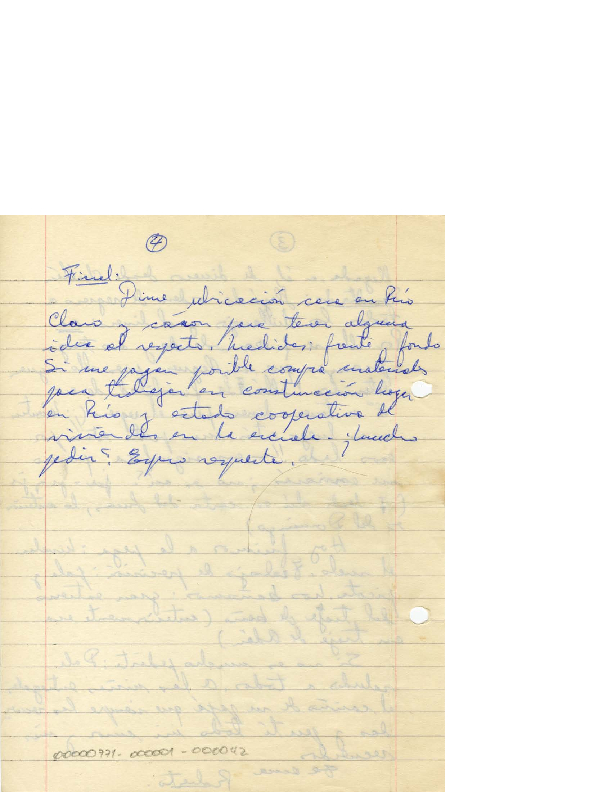 4
Final:
Dime ubicación casa en Río
Claro y cómo para tener alguna
idea al respecto. Medidas: frente y fondo
Si me pagan posible compra materiales
para trabajar en construcción hogar
en Río y estado cooperativa de
viviendas en la escuela. ¿Mucho
pedir? Espero respuesta.
00000771-000001-000042